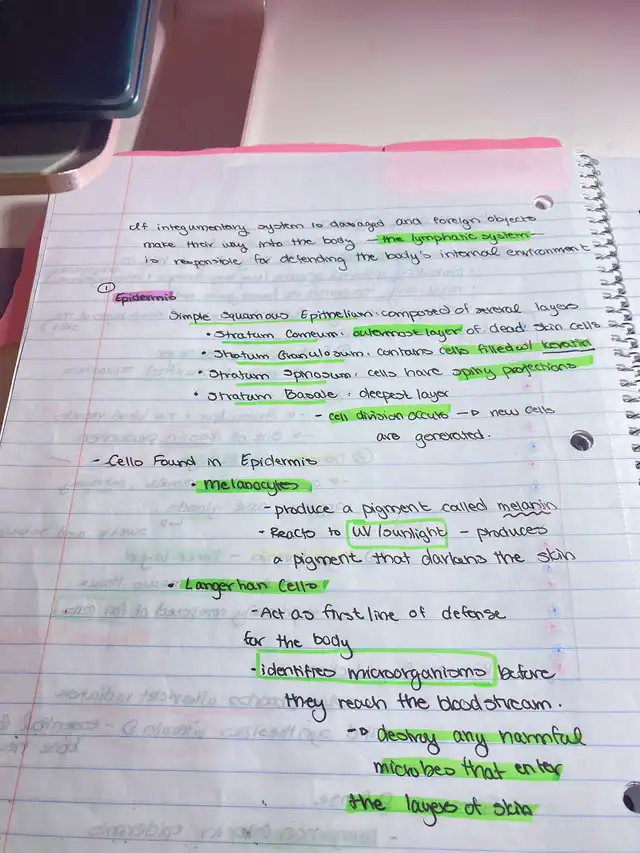 If integumentary system is damaged and foreign objects
make their way into the body - the lymphatic system -
is responsible for defending the body's internal environment
① Epidermis
Simple Squamous Epithelium: composed of several layers
• Stratum Corneum: outermost layer of dead skin cells
• Stratum Granulosum: contains cells filled w/ keratin
• Stratum Spinosum: cells have spiny projections
• Stratum Basale: deepest layer
- cell division occurs → new cells
are generated.
- Cells Found in Epidermis
• Melanocytes
- produce a pigment called melanin
- Reacts to UV/sunlight - produces
a pigment that darkens the skin
• Langerhan Cells
- Act as first line of defense
for the body
- identifies microorganisms before
they reach the bloodstream.
→ destroy any harmful
microbes that enter
the layers of skin